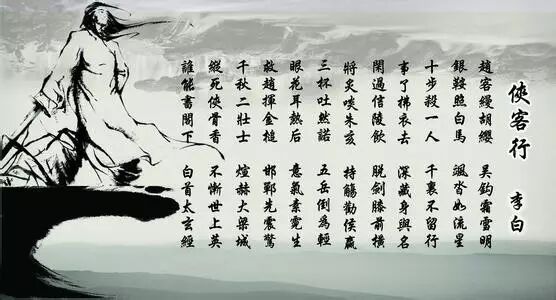 俠客行 李白
趙客缦胡纓 吴鈎霜雪明
銀鞍照白馬 颯沓如流星
十步殺一人 千裏不留行
事了拂衣去 深藏身與名
閑過信陵飲 脱劍膝前横
將炙啖朱亥 持觴勸侯嬴
三杯吐然諾 五岳倒爲輕
眼花耳熱后 意氣素霓生
救趙揮金槌 邯鄲先震驚
千秋二壯士 煊赫大梁城
縱死俠骨香 不慚世上英
誰能書閣下 白首太玄經